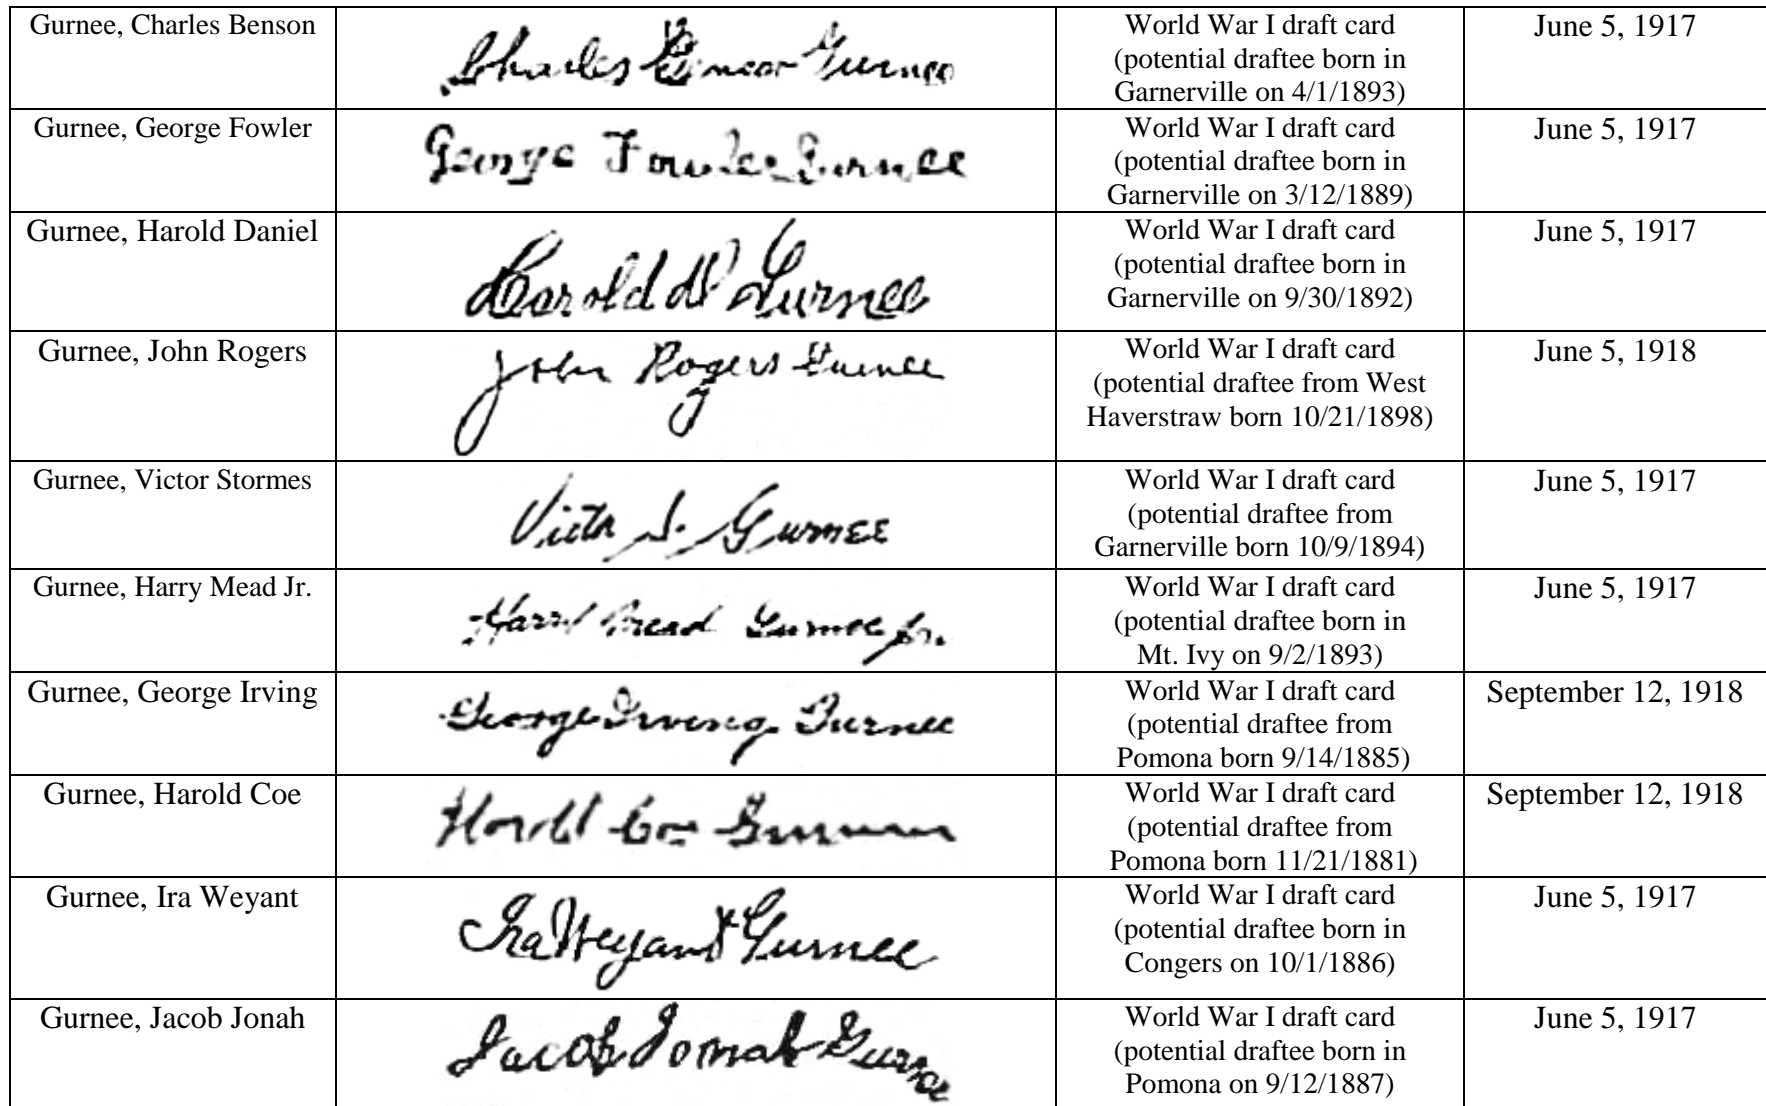 Gurnee, Charles Benson
Charles Benson Gurnee
World War I draft card
(potential draftee born in
Garnerville on 4/1/1893)
June 5, 1917
Gurnee, George Fowler
George Fowler Gurnee
World War I draft card
(potential draftee born in
Garnerville on 3/12/1889)
June 5, 1917
Gurnee, Harold Daniel
Harold D Gurnee
World War I draft card
(potential draftee born in
Garnerville on 9/30/1892)
June 5, 1917
Gurnee, John Rogers
John Rogers Gurnee
World War I draft card
(potential draftee from West
Haverstraw born 10/21/1898)
June 5, 1918
Gurnee, Victor Stormes
Victor S. Gurnee
World War I draft card
(potential draftee from
Garnerville born 10/9/1894)
June 5, 1917
Gurnee, Harry Mead Jr.
Harry Mead Gurnee Jr.
World War I draft card
(potential draftee born in
Mt. Ivy on 9/2/1893)
June 5, 1917
Gurnee, George Irving
George Irving Gurnee
World War I draft card
(potential draftee from
Pomona born 9/14/1885)
September 12, 1918
Gurnee, Harold Coe
Harold Coe Gurnee
World War I draft card
(potential draftee from
Pomona born 11/21/1881)
September 12, 1918
Gurnee, Ira Weyant
Ira Weyant Gurnee
World War I draft card
(potential draftee born in
Congers on 10/1/1886)
June 5, 1917
Gurnee, Jacob Jonah
Jacob Jonah Gurnee
World War I draft card
(potential draftee born in
Pomona on 9/12/1887)
June 5, 1917